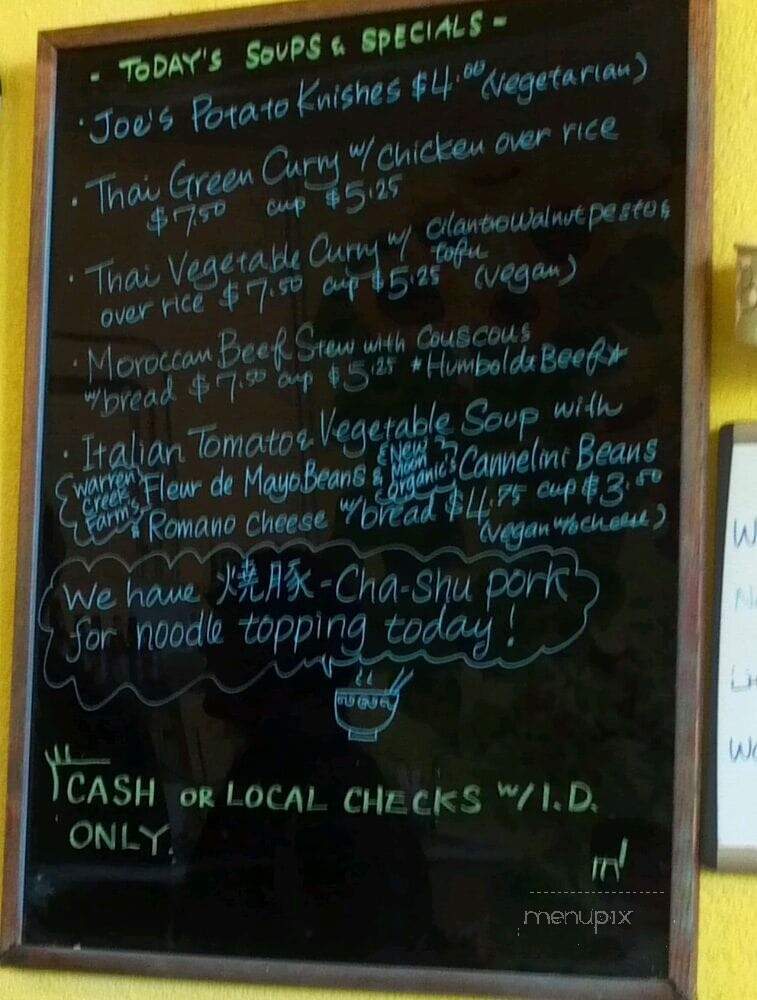 - TODAY'S SOUPS & SPECIALS -
· Joe's Potato Knishes $4.00 (vegetarian)
· Thai Green Curry w/ chicken over rice
$7.50 cup $5.25
· Thai Vegetable Curry w/ cilantro walnut pesto &
tofu
over rice $7.50 cup $5.25 (vegan)
· Moroccan Beef Stew with Couscous
w/bread $7.50 cup $5.25 *Humboldt Beef*
· Italian Tomato & Vegetable Soup with
{Warren Creek Farm's} Fleur de Mayo Beans & {New Moon Organic's} Cannelini Beans
& Romano cheese w/bread $4.75 cup $3.50
(vegan w/o cheese)
We have 焼豚-Cha-Shu pork
for noodle topping today!
CASH OR LOCAL CHECKS w/ I.D.
ONLY.
menupix